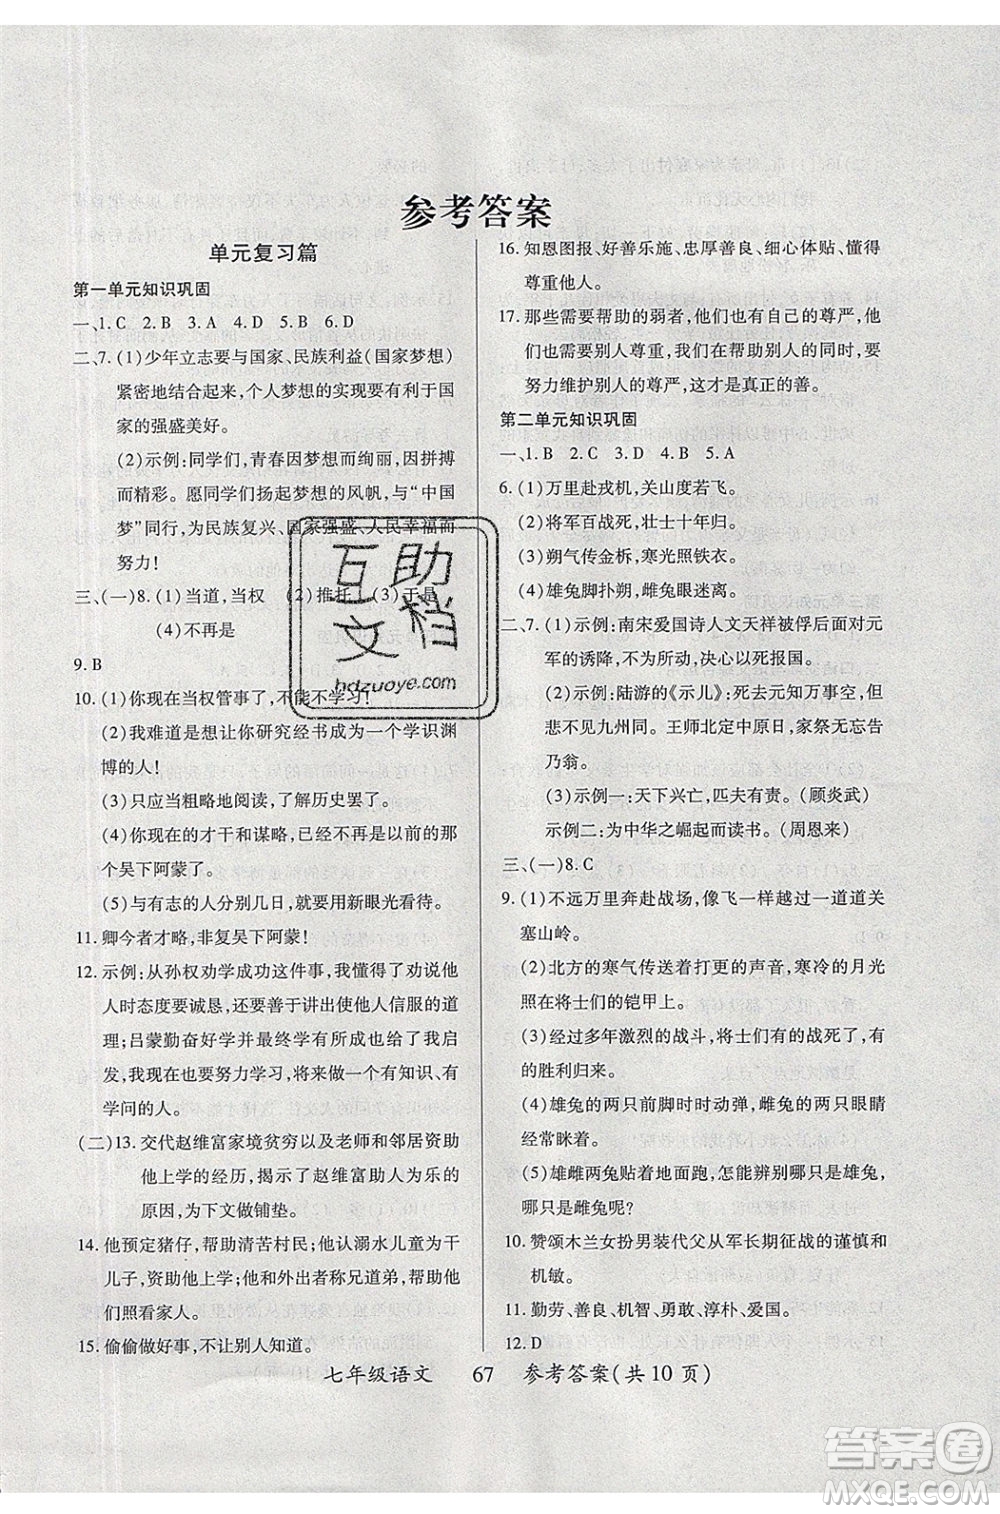 参考答案
单元复习篇
第一单元知识巩固
一、1.C 2.B 3.A 4.D 5.B 6.D
二、7.(1)少年立志要与国家、民族利益(国家梦想)
紧密地结合起来,个人梦想的实现要有利于国
家的强盛美好。
(2)示例:同学们,青春因梦想而绚丽,因拼搏
而精彩。愿同学们扬起梦想的风帆,与“中国
梦”同行,为民族复兴、国家强盛、人民幸福而
努力!
三、(一)8.(1)当道,当权 (2)推托 (3)于是
(4)不再是
9.B
10.(1)你现在当权管事了,不能不学习!
(2)我难道是想让你研究经书成为一个学识渊
博的人吗!
(3)只应当粗略地阅读,了解历史罢了。
(4)你现在的才干和谋略,已经不再是以前那
个吴下阿蒙了。
(5)与有志的人分别几日,就要用新眼光看待。
11.卿今者才略,非复吴下阿蒙!
12.示例:从孙权劝学成功这件事,我懂得了劝说他
人时态度要诚恳,还要善于讲出使他人信服的道
理;吕蒙勤奋好学并最终学有所成给了我启发,
我发现自己也要努力学习,做一个有知识、有
学问的人。
(二)13.交代赵维富家境贫穷以及老师和邻居资助
他上学的经历,揭示了赵维富助人为乐的
原因,为下文做铺垫。
14.他预定猪仔,帮助清苦村民;他认溺水儿童为干
儿子,资助他上学;他与张光付称兄道弟,帮他
们照看家人。
15.偷偷做好事,不让别人知道。
16.知恩图报、好善乐施、忠厚善良、细心体贴、懂得
尊重他人。
17.那些需要帮助的弱者,他们也有自己的尊严,他
们需要别人尊重,我们在帮助别人的同时,要
努力维护别人的尊严,这才是真正的善。
第二单元知识巩固
一、1.B 2.C 3.D 4.D 5.A
6.(1)万里赴戎机,关山度若飞。
(2)将军百战死,壮士十年归。
(3)朔气传金柝,寒光照铁衣。
(4)雄兔脚扑朔,雌兔眼迷离。
二、7.(1)示例:南宋爱国诗人文天祥被俘后面对元
军的诱降,不为所动,决心以死报国。
(2)示例:陆游的《示儿》:死去元知万事空,但
悲不见九州同。王师北定中原日,家祭无忘告
乃翁。
(3)示例一:天下兴亡,匹夫有责。(顾炎武)
示例二:为中华之崛起而读书。(周恩来)
三、(一)8.C
9.(1)不远万里奔赴战场,像飞一样越过道道关
塞山岭。
(2)北方的寒气传送着打更的声音,寒冷的月光
照在将士们的铠甲上。
(3)经过多年激烈的战斗,将士们有的战死,有
的胜利归来。
(4)雄兔的两只前脚时时动弹,雌兔的两只眼睛
经常眯着。
(5)雄雌两兔贴着地面跑,怎能辨别哪只是雄兔,
哪只是雌兔呢?
10.赞颂木兰女扮男装代父从军长期征战的谨慎和
机敏。
11.勤劳、善良、机智、勇敢、淳朴、爱国。
12.D
七年级语文 67 参考答案(共10页)
互助
文档
hdzuoye.com
答案卷
MXQE.COM